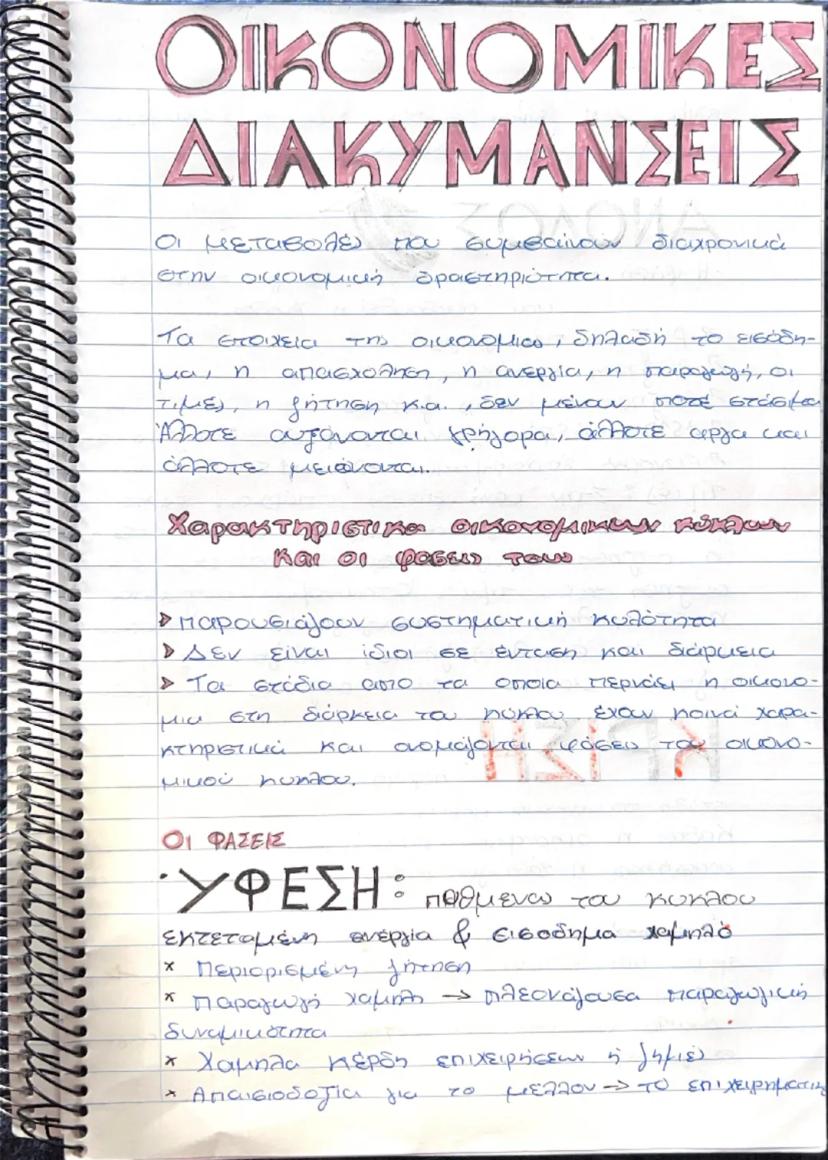 ΟΙΚΟΝΟΜΙΚΕΣ
ΔΙΑΚΥΜΑΝΣΕΙΣ
Οι μεταβολές που συμβαίνουν διαχρονικά
στην οικονομική δραστηριότητα.
Τα στοιχεία της οικονομίας, δηλαδή το εισόδη-
μα, η απασχόληση, η ανεργία, η παραγωγή, οι
τιμές, η ζήτηση κ.α., δεν μένουν ποτέ στάσιμα
Άλλοτε αυξάνονται γρήγορα, άλλοτε αργα και
άλλοτε μειώνονται.
Χαρακτηριστικα οικονομικων κύκλων
και οι φασεις τους
➤ παρουσιάζουν συστηματική κυλότητα
➤ Δεν είναι ίδιοι σε ένταση και διάρκεια
➤ Τα στάδια απο τα οποια περνάει η οικονο-
μια στη διάρκεια του κύκλου έχουν κοινά χαρα-
κτηριστικά και ονομάζονται φάσεις του οικονο-
μικού κυκλου.
ΟΙ ΦΑΣΕΙΣ
·ΥΦΕΣΗ: πυθμενας του κυκλου
εκτεταμένη ανεργία & εισοδημα χαμηλό
× Περιορισμένη ζήτηση
× Παραγωγή χαμηλη → πλεονάζουσα παραγωγική
δυναμικότητα
× Χαμηλα κέρδη επιχειρήσεων ή ζημιές
× Απαισιοδοξία για το μέλλον → το επιχειρηματικ
ΚΡΙΣΗ
ΑΝΟΔΟΣ